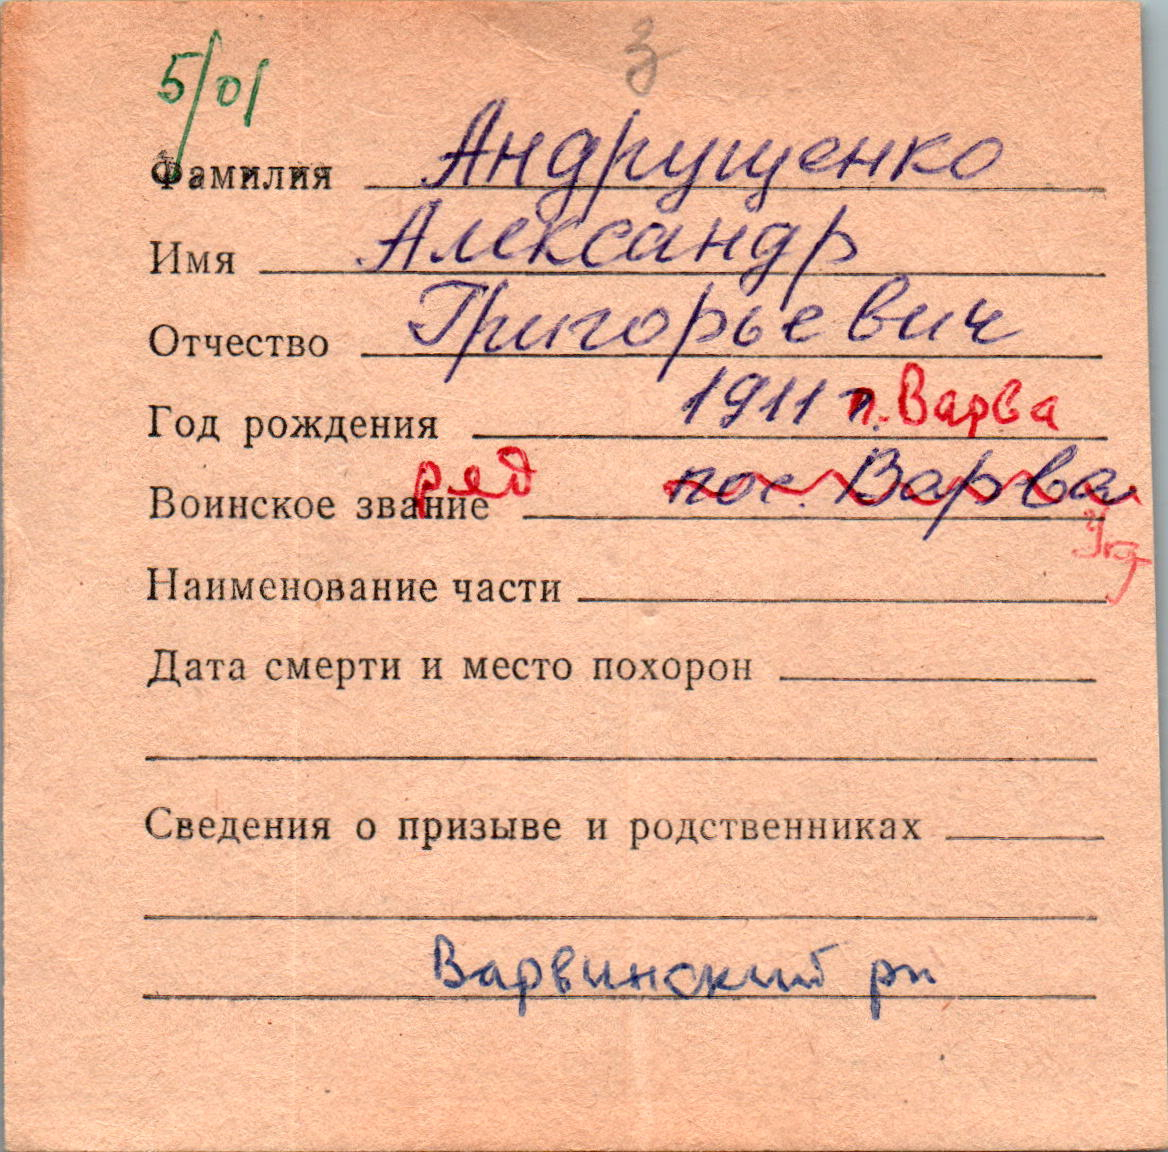 5/01
З
Фамилия Андрущенко
Имя Александр
Отчество Григорьевич
Год рождения 1911 г. п. Варва
Воинское звание ряд пос. Варва
Наименование части
Дата смерти и место похорон
Сведения о призыве и родственниках
Варвинский р-н